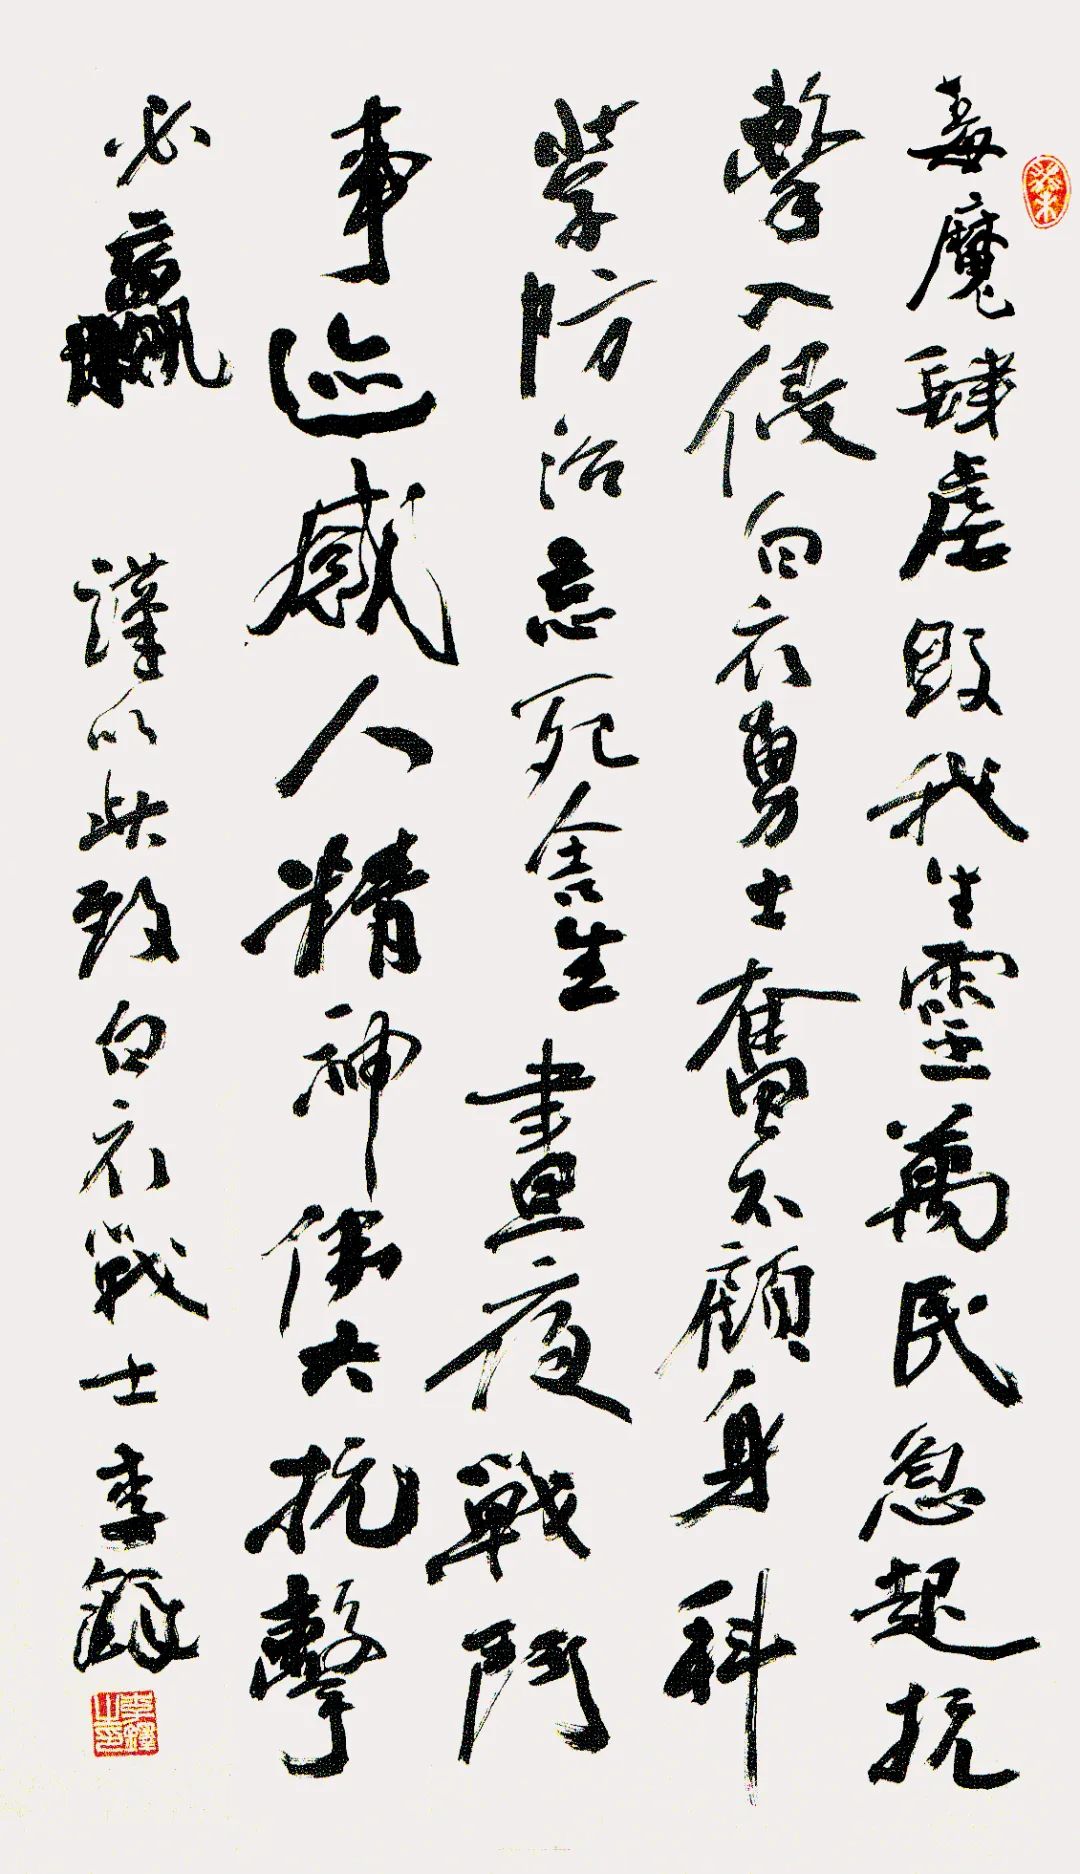 毒魔肆虐毁我生靈萬民急起抗
擊入侵白衣勇士奮不顧身科
學防治忘死舍生晝夜戰鬥
事迹感人精神偉大抗擊
必赢 謹以此致白衣戰士李鐸
李鐸之印